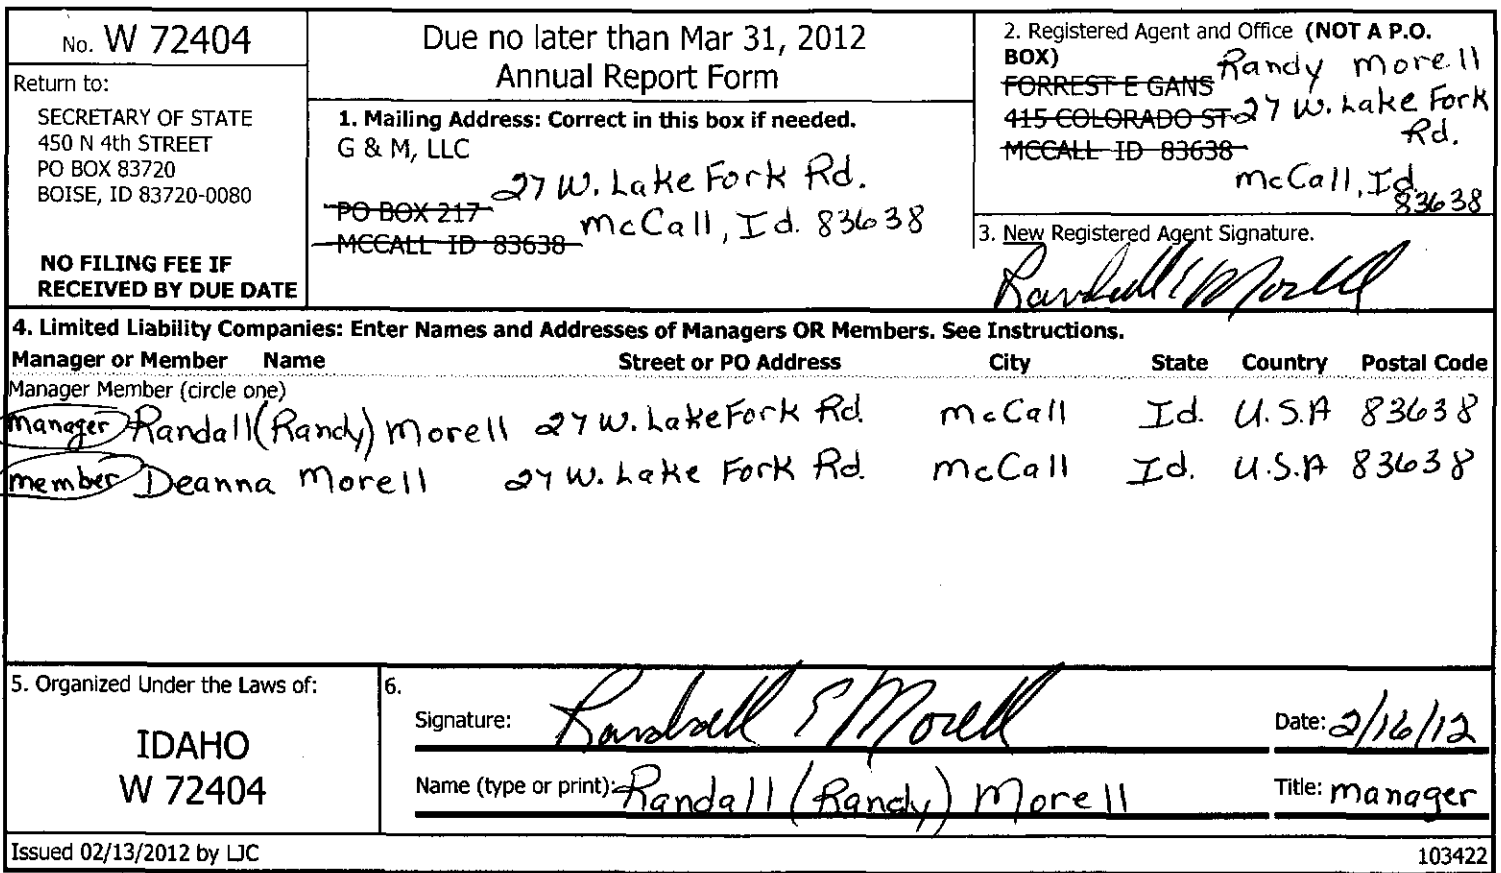 No. W 72404
Return to:
SECRETARY OF STATE
450 N 4th STREET
PO BOX 83720
BOISE, ID 83720-0080
NO FILING FEE IF
RECEIVED BY DUE DATE
Due no later than Mar 31, 2012
Annual Report Form
1. Mailing Address: Correct in this box if needed.
G & M, LLC
27 W. Lake Fork Rd.
PO BOX 217
McCall, Id. 83638
MCCALL ID 83638
2. Registered Agent and Office (NOT A P.O.
BOX) Randy Morell
FORREST E GANS
415 COLORADO ST 27 W. Lake Fork
Rd.
MCCALL ID 83638
McCall, Id.
83638
3. New Registered Agent Signature.
Randall E Morell
4. Limited Liability Companies: Enter Names and Addresses of Managers OR Members. See Instructions.
Manager or Member Name Street or PO Address City State Country Postal Code
Manager Member (circle one)
manager Randall (Randy) Morell 27 W. Lake Fork Rd. McCall Id. U.S.A 83638
member Deanna Morell 27 W. Lake Fork Rd. McCall Id. U.S.A 83638
5. Organized Under the Laws of:
IDAHO
W 72404
6.
Signature: Randall E Morell Date: 2/16/12
Name (type or print): Randall (Randy) Morell Title: manager
Issued 02/13/2012 by LJC 103422